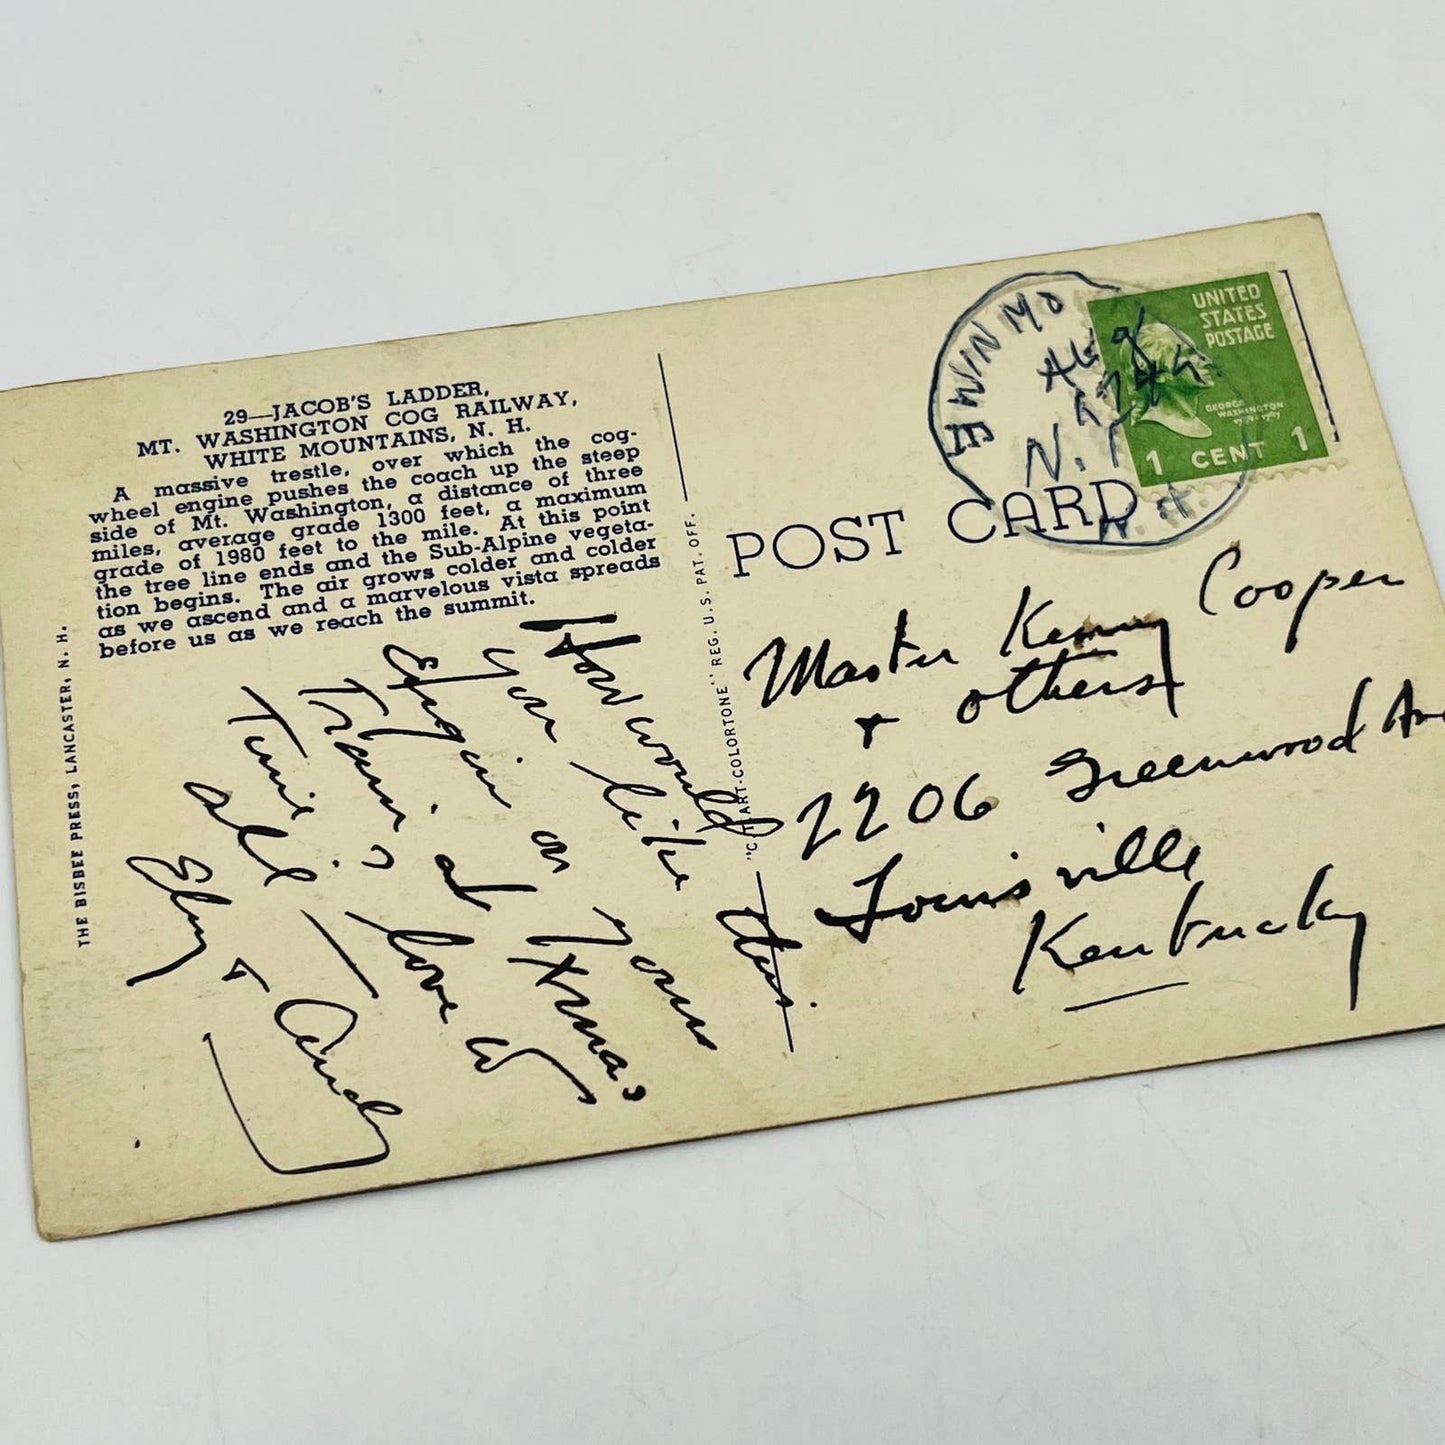 29—JACOB'S LADDER,
MT. WASHINGTON COG RAILWAY,
WHITE MOUNTAINS, N. H.
A massive trestle, over which the cog-
wheel engine pushes the coach up the steep
side of Mt. Washington, a distance of three
miles, average grade 1300 feet, a maximum
grade of 1980 feet to the mile. At this point
the tree line ends and the Sub-Alpine vegeta-
tion begins. The air grows colder and colder
as we ascend and a marvelous vista spreads
before us as we reach the summit.
THE BISBEE PRESS, LANCASTER, N. H.
How would
you like this
Engin on your
Train at Xmas
Time? love to
all —
& Candy
"C.T. ART-COLORTONE" REG. U.S. PAT. OFF.
POST CARD
N.
UNITED
STATES
POSTAGE
GEORGE
WASHINGTON
1 CENT 1
Master Kenny Cooper
+ others
2206 Greenwood Ave
Louisville
Kentucky